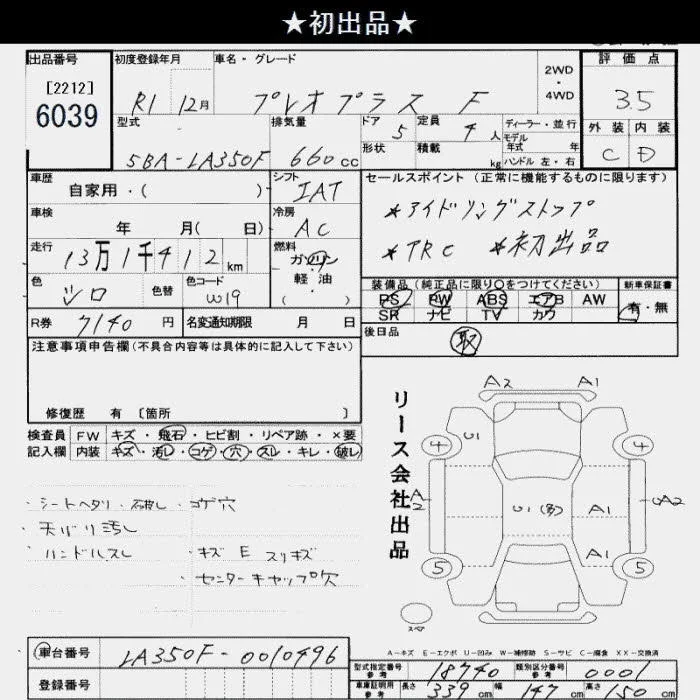 ★初出品★
出品番号
[2212]
6039
初度登録年月
R1 12月
車名・グレード
プレオプラス F
2WD
・
4WD
評価点
3.5
外装 内装
C D
型式
5BA-LA350F
排気量
660cc
ドア 5
形状
定員 4人
積載 kg
ディーラー・並行
モデル
年式 年
ハンドル 左・右
車歴
自家用・( )
シフト
IAT
セールスポイント (正常に機能するものに限ります)
*アイドリングストップ
*TRC *初出品
車検
年 月( 日)
冷房
AC
走行
13万1千412km
燃料
ガソリン
軽・油
( )
色
シロ
色替
色コード
W19
装備品 (純正品に限り○をつけてください)
PS PW ABS エアB AW
SR ナビ TV カワ
新車保証書
有・無
R券 7140円
名変通知期限 月 日
後日品
取
注意事項申告欄 (不具合内容等は具体的に記入して下さい)
修復歴 有 〔箇所 〕
検査員
記入欄
FW キズ・飛石・ヒビ割・リペア跡・×要
内装 キズ・汚れ・コゲ・穴・スレ・キレ・破れ
・シートヘタリ・破れ・コゲ穴
・天バリ汚れ
・ハンドルスレ
・キズ E スリキズ
・センターキャップ穴
リース会社出品
A2 A1
4 U1 4
A2 U1(多) A1 A2
A1
5 5
スペア
A-キズ E-エクボ U-凹み W-補修跡 S-サビ C-腐食 XX-交換済
車台番号
LA350F-0010496
登録番号
型式指定番号
参考
18740
類別区分番号
参考
0001
車庫証明用
参考
長さ 339cm 幅 147cm 高さ 150cm